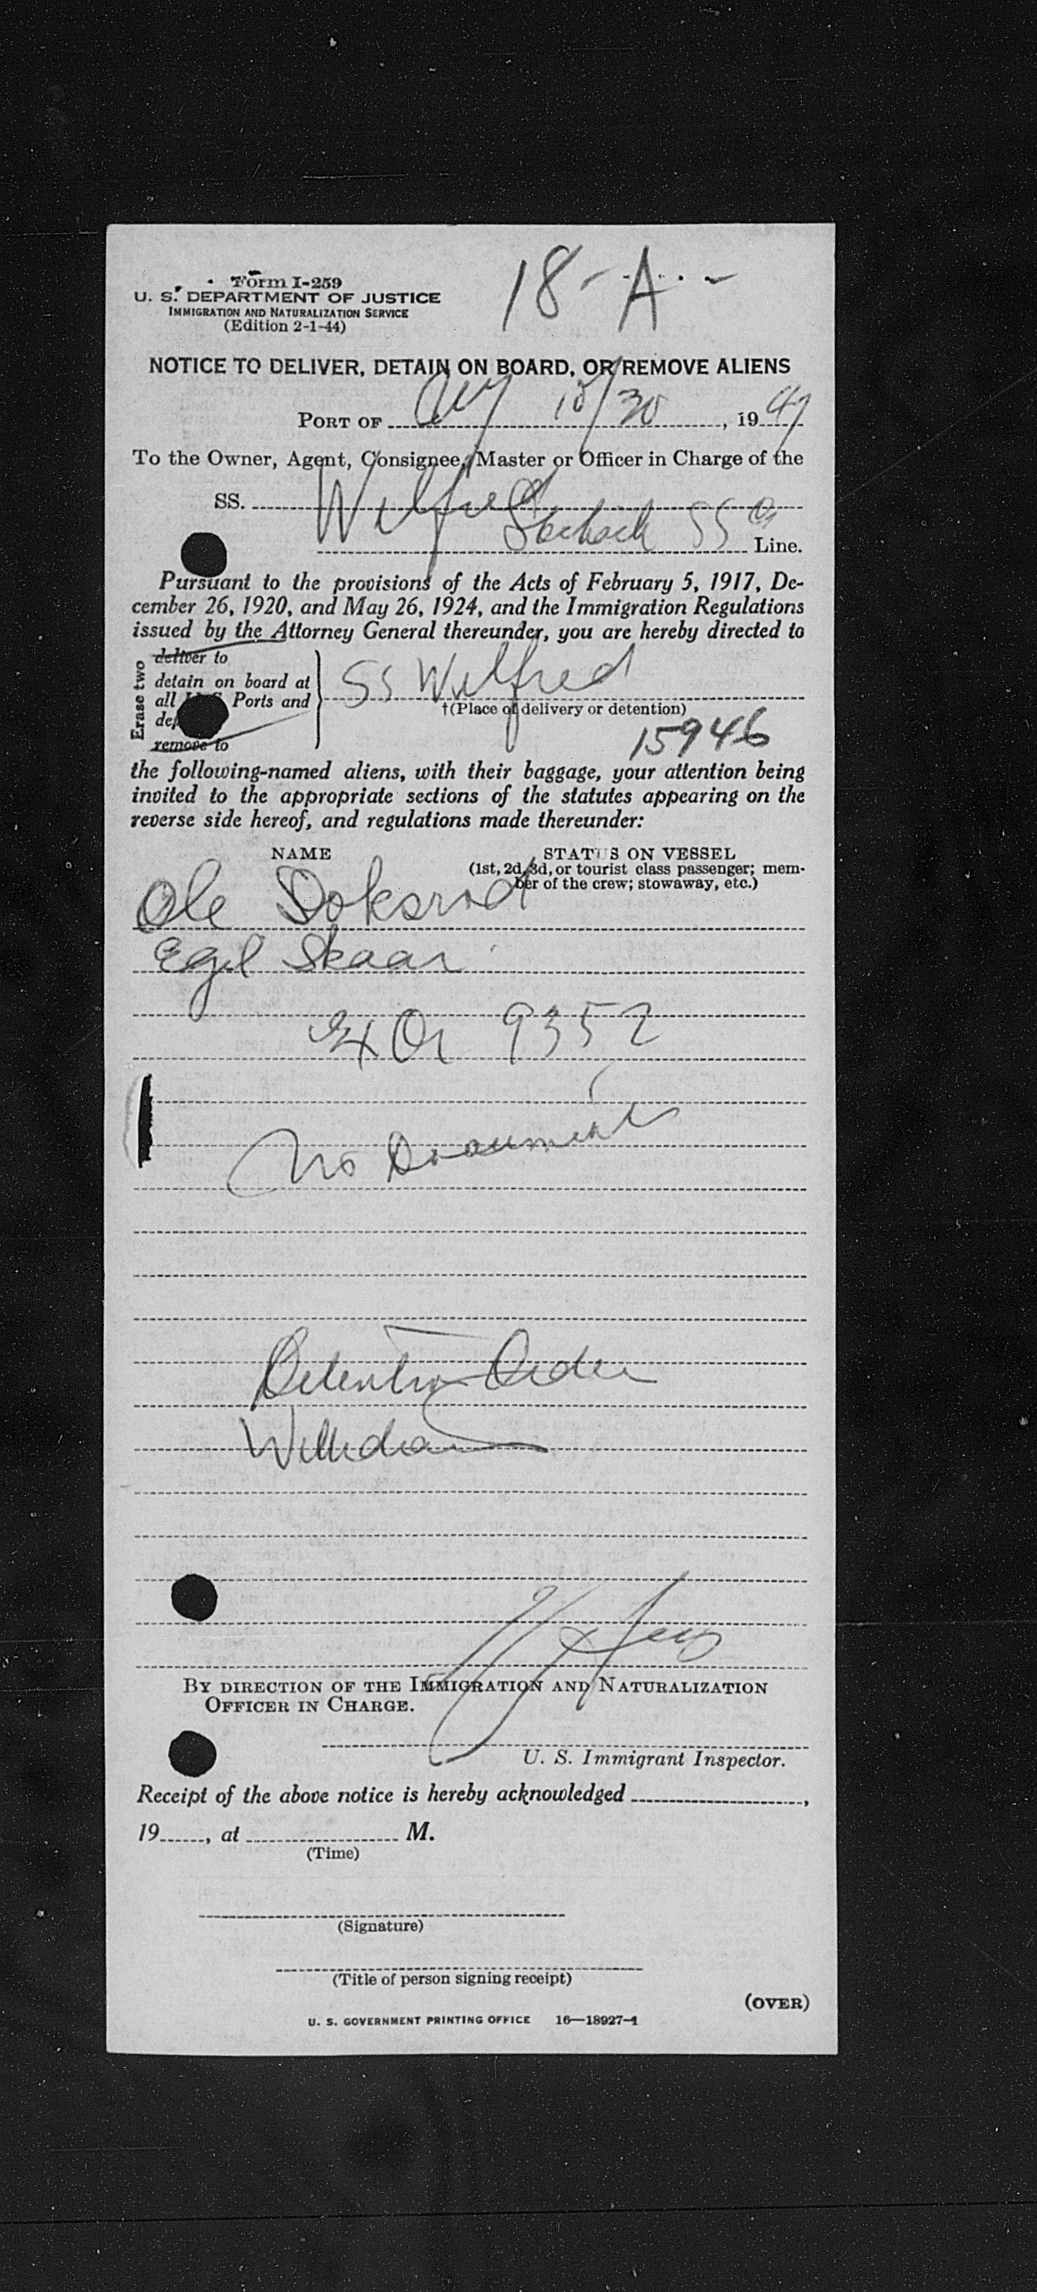 18-A.-
Form I-259
U. S. DEPARTMENT OF JUSTICE
IMMIGRATION AND NATURALIZATION SERVICE
(Edition 2-1-44)
NOTICE TO DELIVER, DETAIN ON BOARD, OR REMOVE ALIENS
PORT OF 10/30, 1947
To the Owner, Agent, Consignee, Master or Officer in Charge of the
SS. Wilfred
SS Line.
Pursuant to the provisions of the Acts of February 5, 1917, De-
cember 26, 1920, and May 26, 1924, and the Immigration Regulations
issued by the Attorney General thereunder, you are hereby directed to
Erase two
deliver to
detain on board at
all Ports and
remove to
SS Wilfred
†(Place of delivery or detention)
15946
the following-named aliens, with their baggage, your attention being
invited to the appropriate sections of the statutes appearing on the
reverse side hereof, and regulations made thereunder:
NAME STATUS ON VESSEL
(1st, 2d, 3d, or tourist class passenger; mem-
ber of the crew; stowaway, etc.)
Ole Doksrod
Egil Skaar
9352
No Documents
Detention Order
Withdrawn
BY DIRECTION OF THE IMMIGRATION AND NATURALIZATION
OFFICER IN CHARGE.
U. S. Immigrant Inspector.
Receipt of the above notice is hereby acknowledged ,
19 , at M.
(Time)
(Signature)
(Title of person signing receipt)
(OVER)
U. S. GOVERNMENT PRINTING OFFICE 16—18927-1